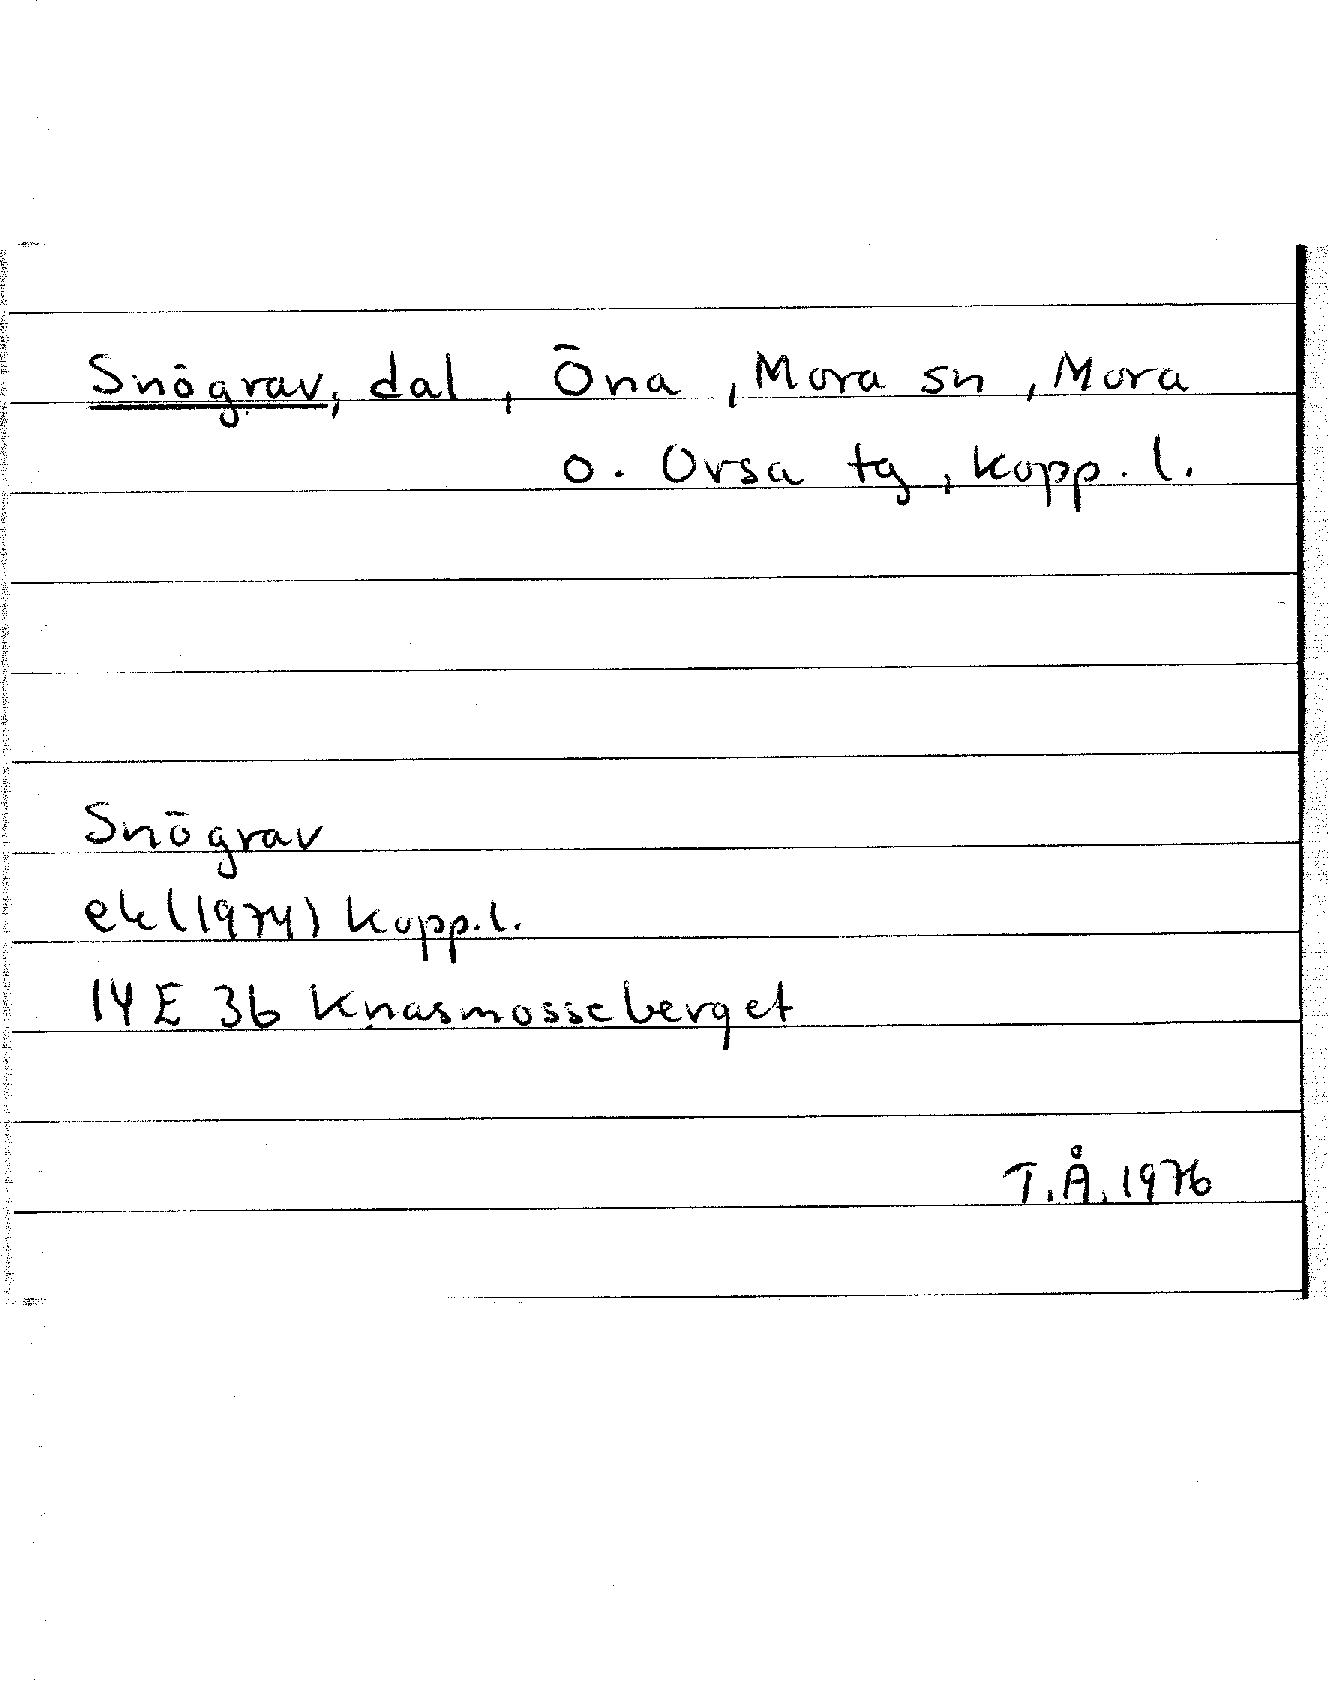 Snögrav, dal, Öna, Mora sn, Mora
o. Orsa tg, Kopp. l.
Snögrav
ek (1974) Kopp.l.
14 E 3b Knasmosseberget
T.Å. 1976